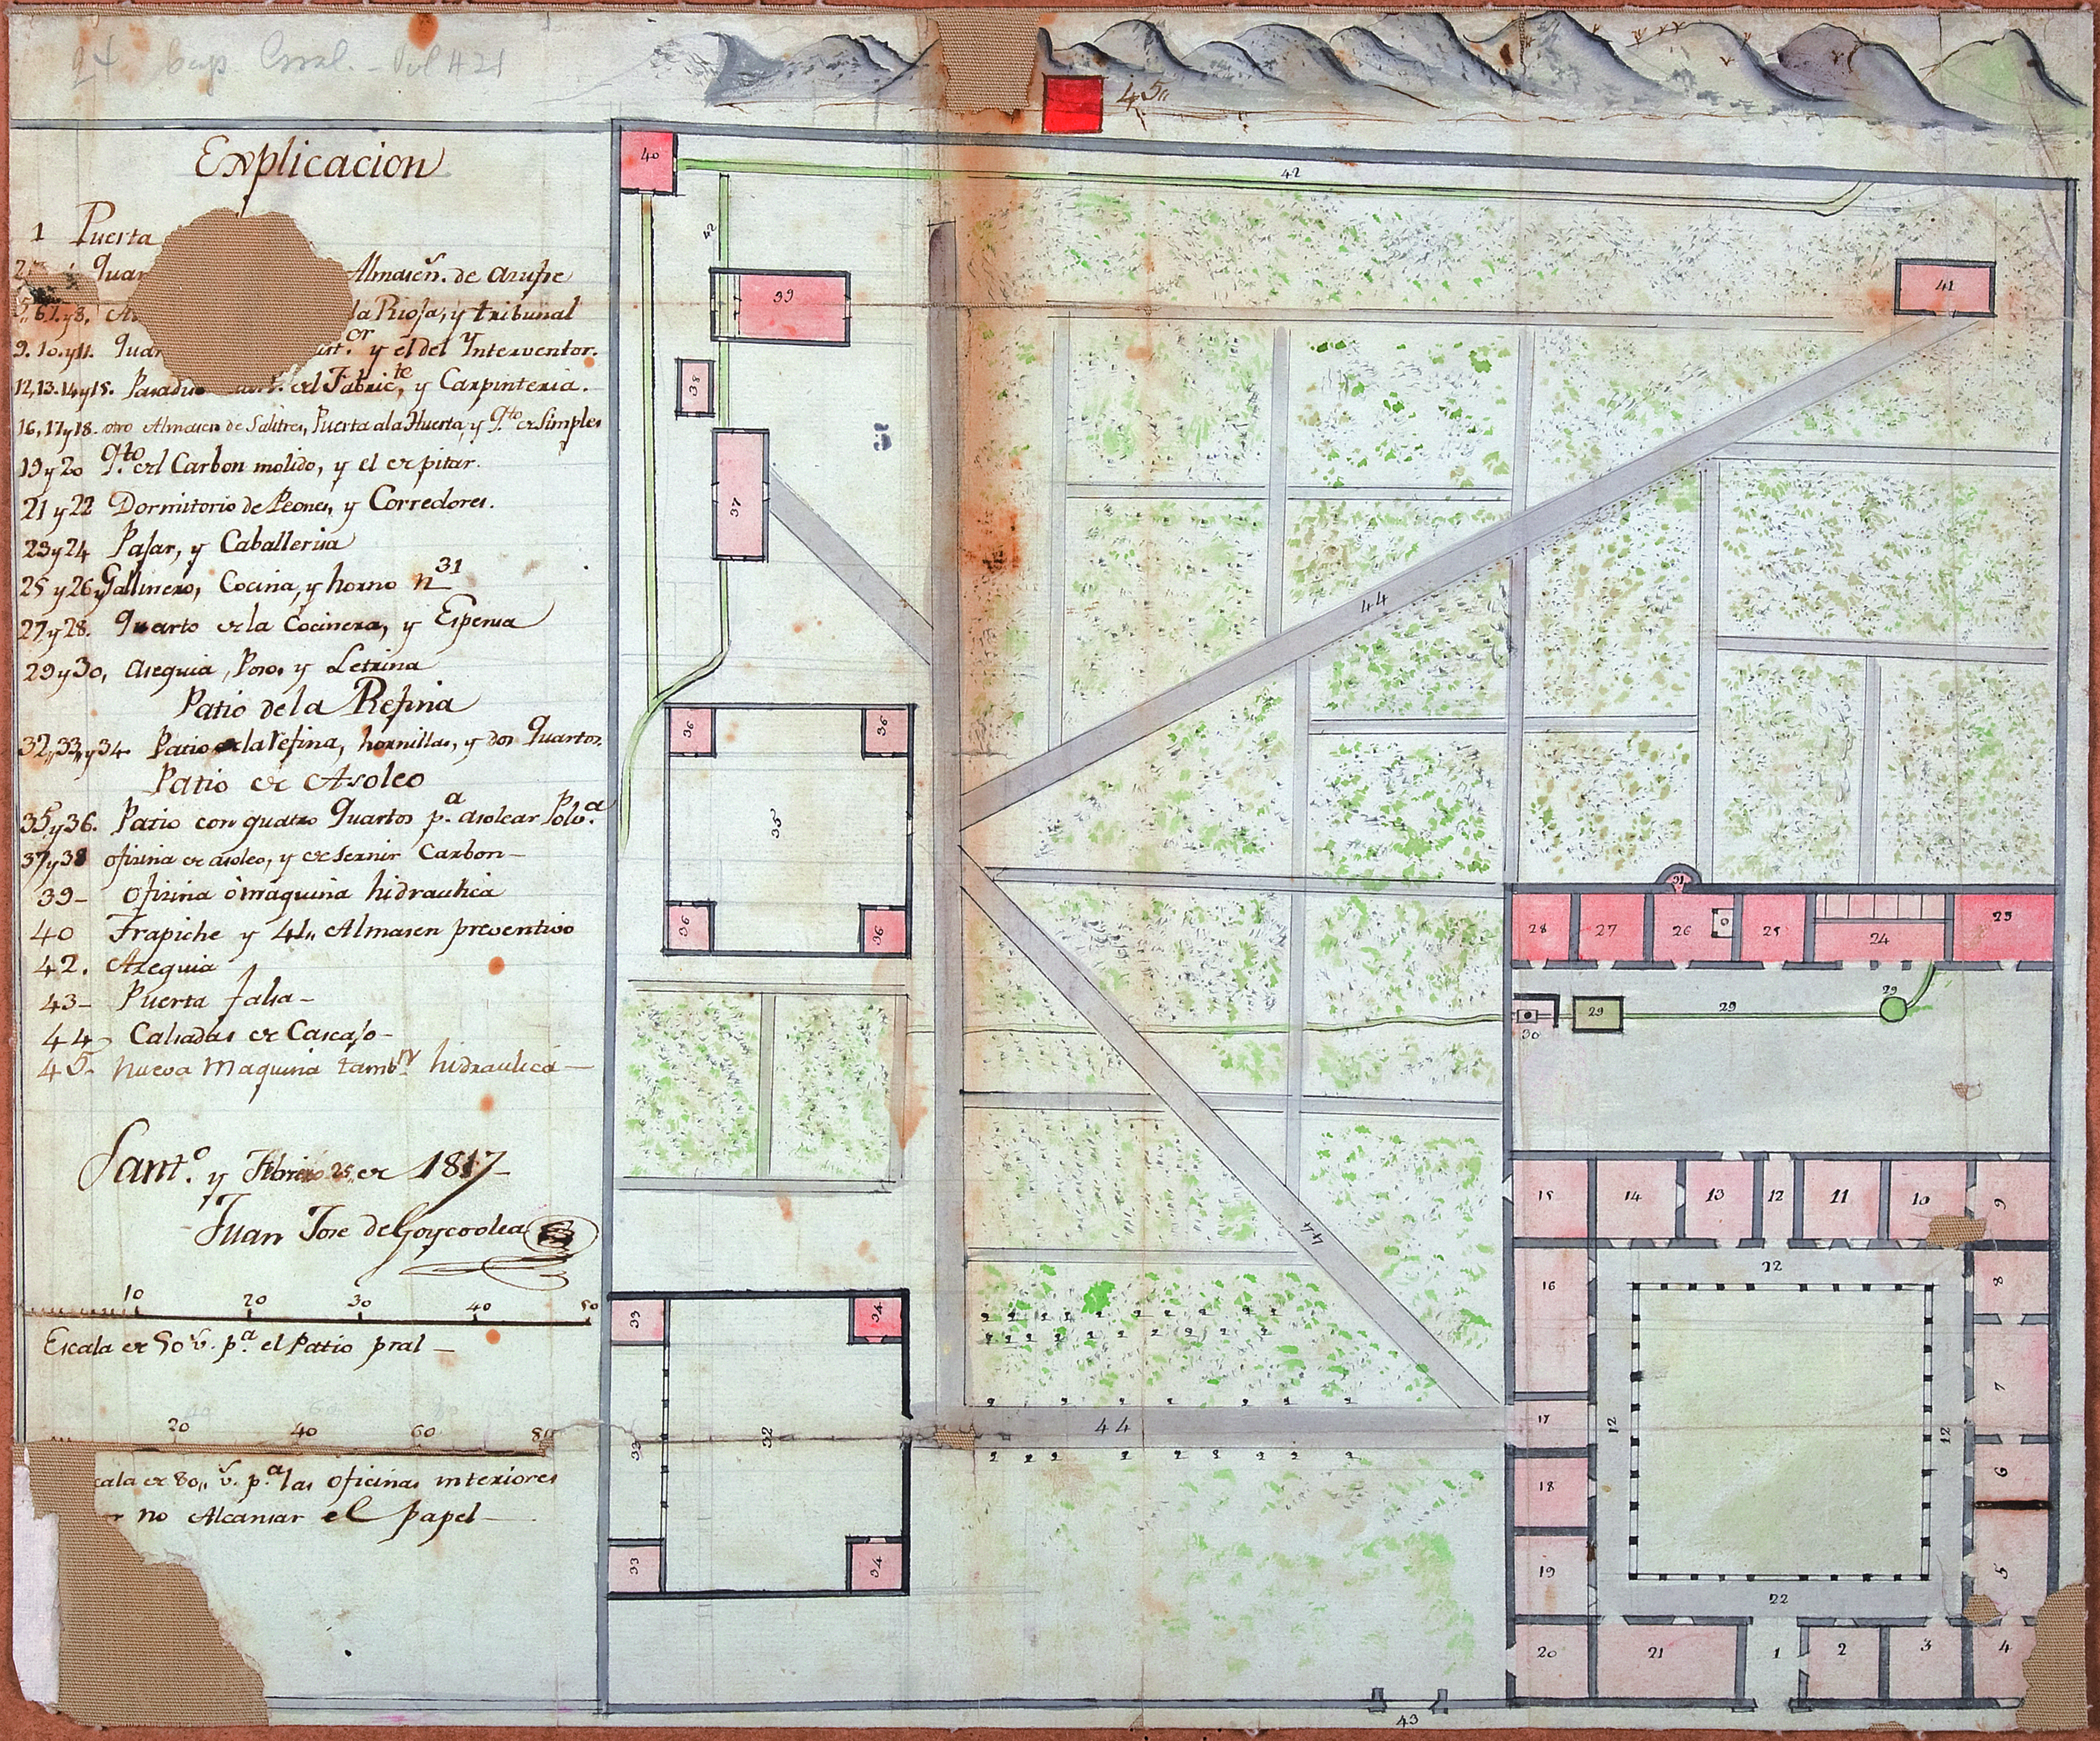 24 Cap Gral. - Vol 421
Explicacion
1 Puerta
2 Quar Almasen. de asufre
5,, 6, 7. y 8. la Riosa, y tribunal
9. 10. y 11. Quar y el del Ynterventor.
12, 13. 14 y 15. Pasadi del Fabric.te, y Carpinteria.
16, 17 y 18. otro Almasen de Salitres, Puerta ala Huerta, y q.to de Simples
19 y 20 q.to del Carbon molido, y el de pitar.
21 y 22 Dormitorio de Peones, y Corredores.
23 y 24 Pajar, y Caballeriia
25 y 26 Gallinero, Cocina, y horno n 31
27 y 28. Quarto de la Cocinera, y Espensa
29 y 30, Asequia, Poso, y Letrina
Patio de la Refina
32,, 33,, y 34. Patio de la refina, hornillas, y dos Quartos.
Patio de Asoleo
35 y 36. Patio con quatro Quartos p.a asolear Polv.a
37 y 38 ofisina de asoleo, y de sernir Carbon-
39- Ofisina ò maquina hidraulica
40 Trapiche y 41,, Almasen preventivo
42. Asequia
43- Puerta falsa-
44- Calsadas de Cascajo-
45. Nueva Maquina tamb.n hidraulica-
Sant.o y Febrero 25,, de 1817-
Juan Jose de Goycoolea
10 20 30 40 50
Escala de 50 v. p.a el Patio pral-
20 40 60 80
cala de 80,, v. p.a las oficinas interiores
r no Alcansar el papel-
45,,
40
42
42
39
41
38
37
44
36
36
35
36
36
31
28
27
26
25
24
23
29
29
29
30
15
14
13
12
11
10
9
44
22
16
8
33
34
7
17
12
12
44
32
32
6
18
19
5
33
34
22
20
21
1
2
3
4
43